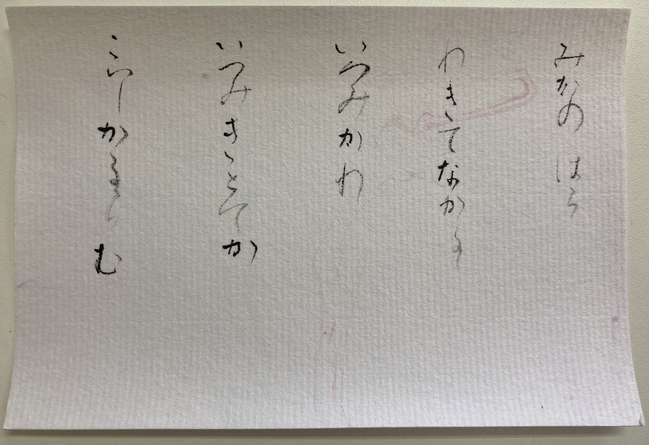 みかの はら
わきてなかる
いつみかわ
いつみきとてか
こいしかるらむ